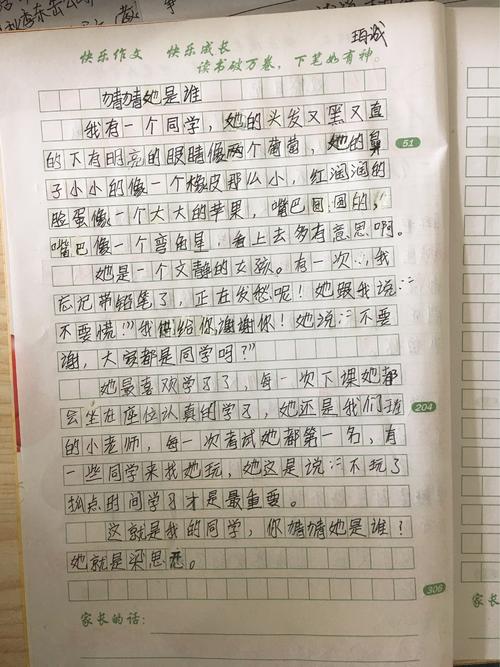 珇诚
快乐作文 快乐成长
读书破万卷，下笔如有神。
猜猜她是谁
我有一个同学，她的头发又黑又直
的下有明亮的眼睛像两个葡萄，她的鼻
子小小的像一个橡皮那么小，红润润的
脸蛋像一个大大的苹果，嘴巴回回的，
嘴巴像一个弯角星，看上去多有意思啊。
她是一个文静的女孩。有一次，我
忘记带铅笔了，正在发愁呢！她跟我说：“
不要慌！”我借给你谢谢你！她说：“不要
谢，大家都是同学吗？”
她最喜欢学习了，每一次下课她都
会坐在座位认真的学习，她还是我们班
的小老师，每一次考试她都第一名，有
一些同学来找她玩，她这是说：“不玩了
抓点时间学习才是最重要。
这就是我的同学，你猜猜她是谁？
她就是梁思
51
204
306
家长的话：